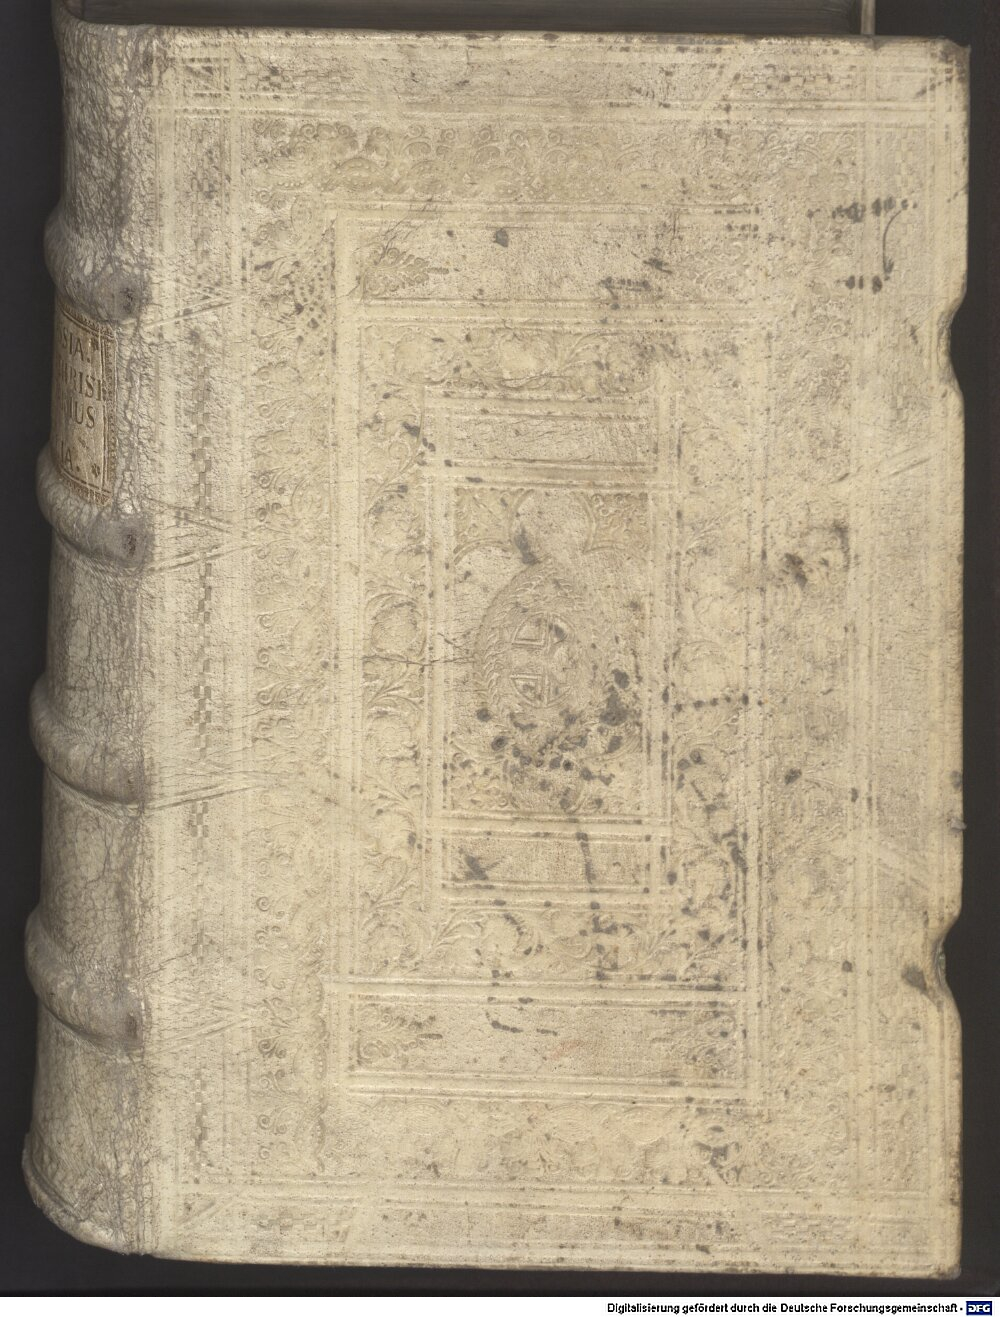 SIA.
HRIS
IUS
A.
Digitalisierung gefördert durch die Deutsche Forschungsgemeinschaft - DFG